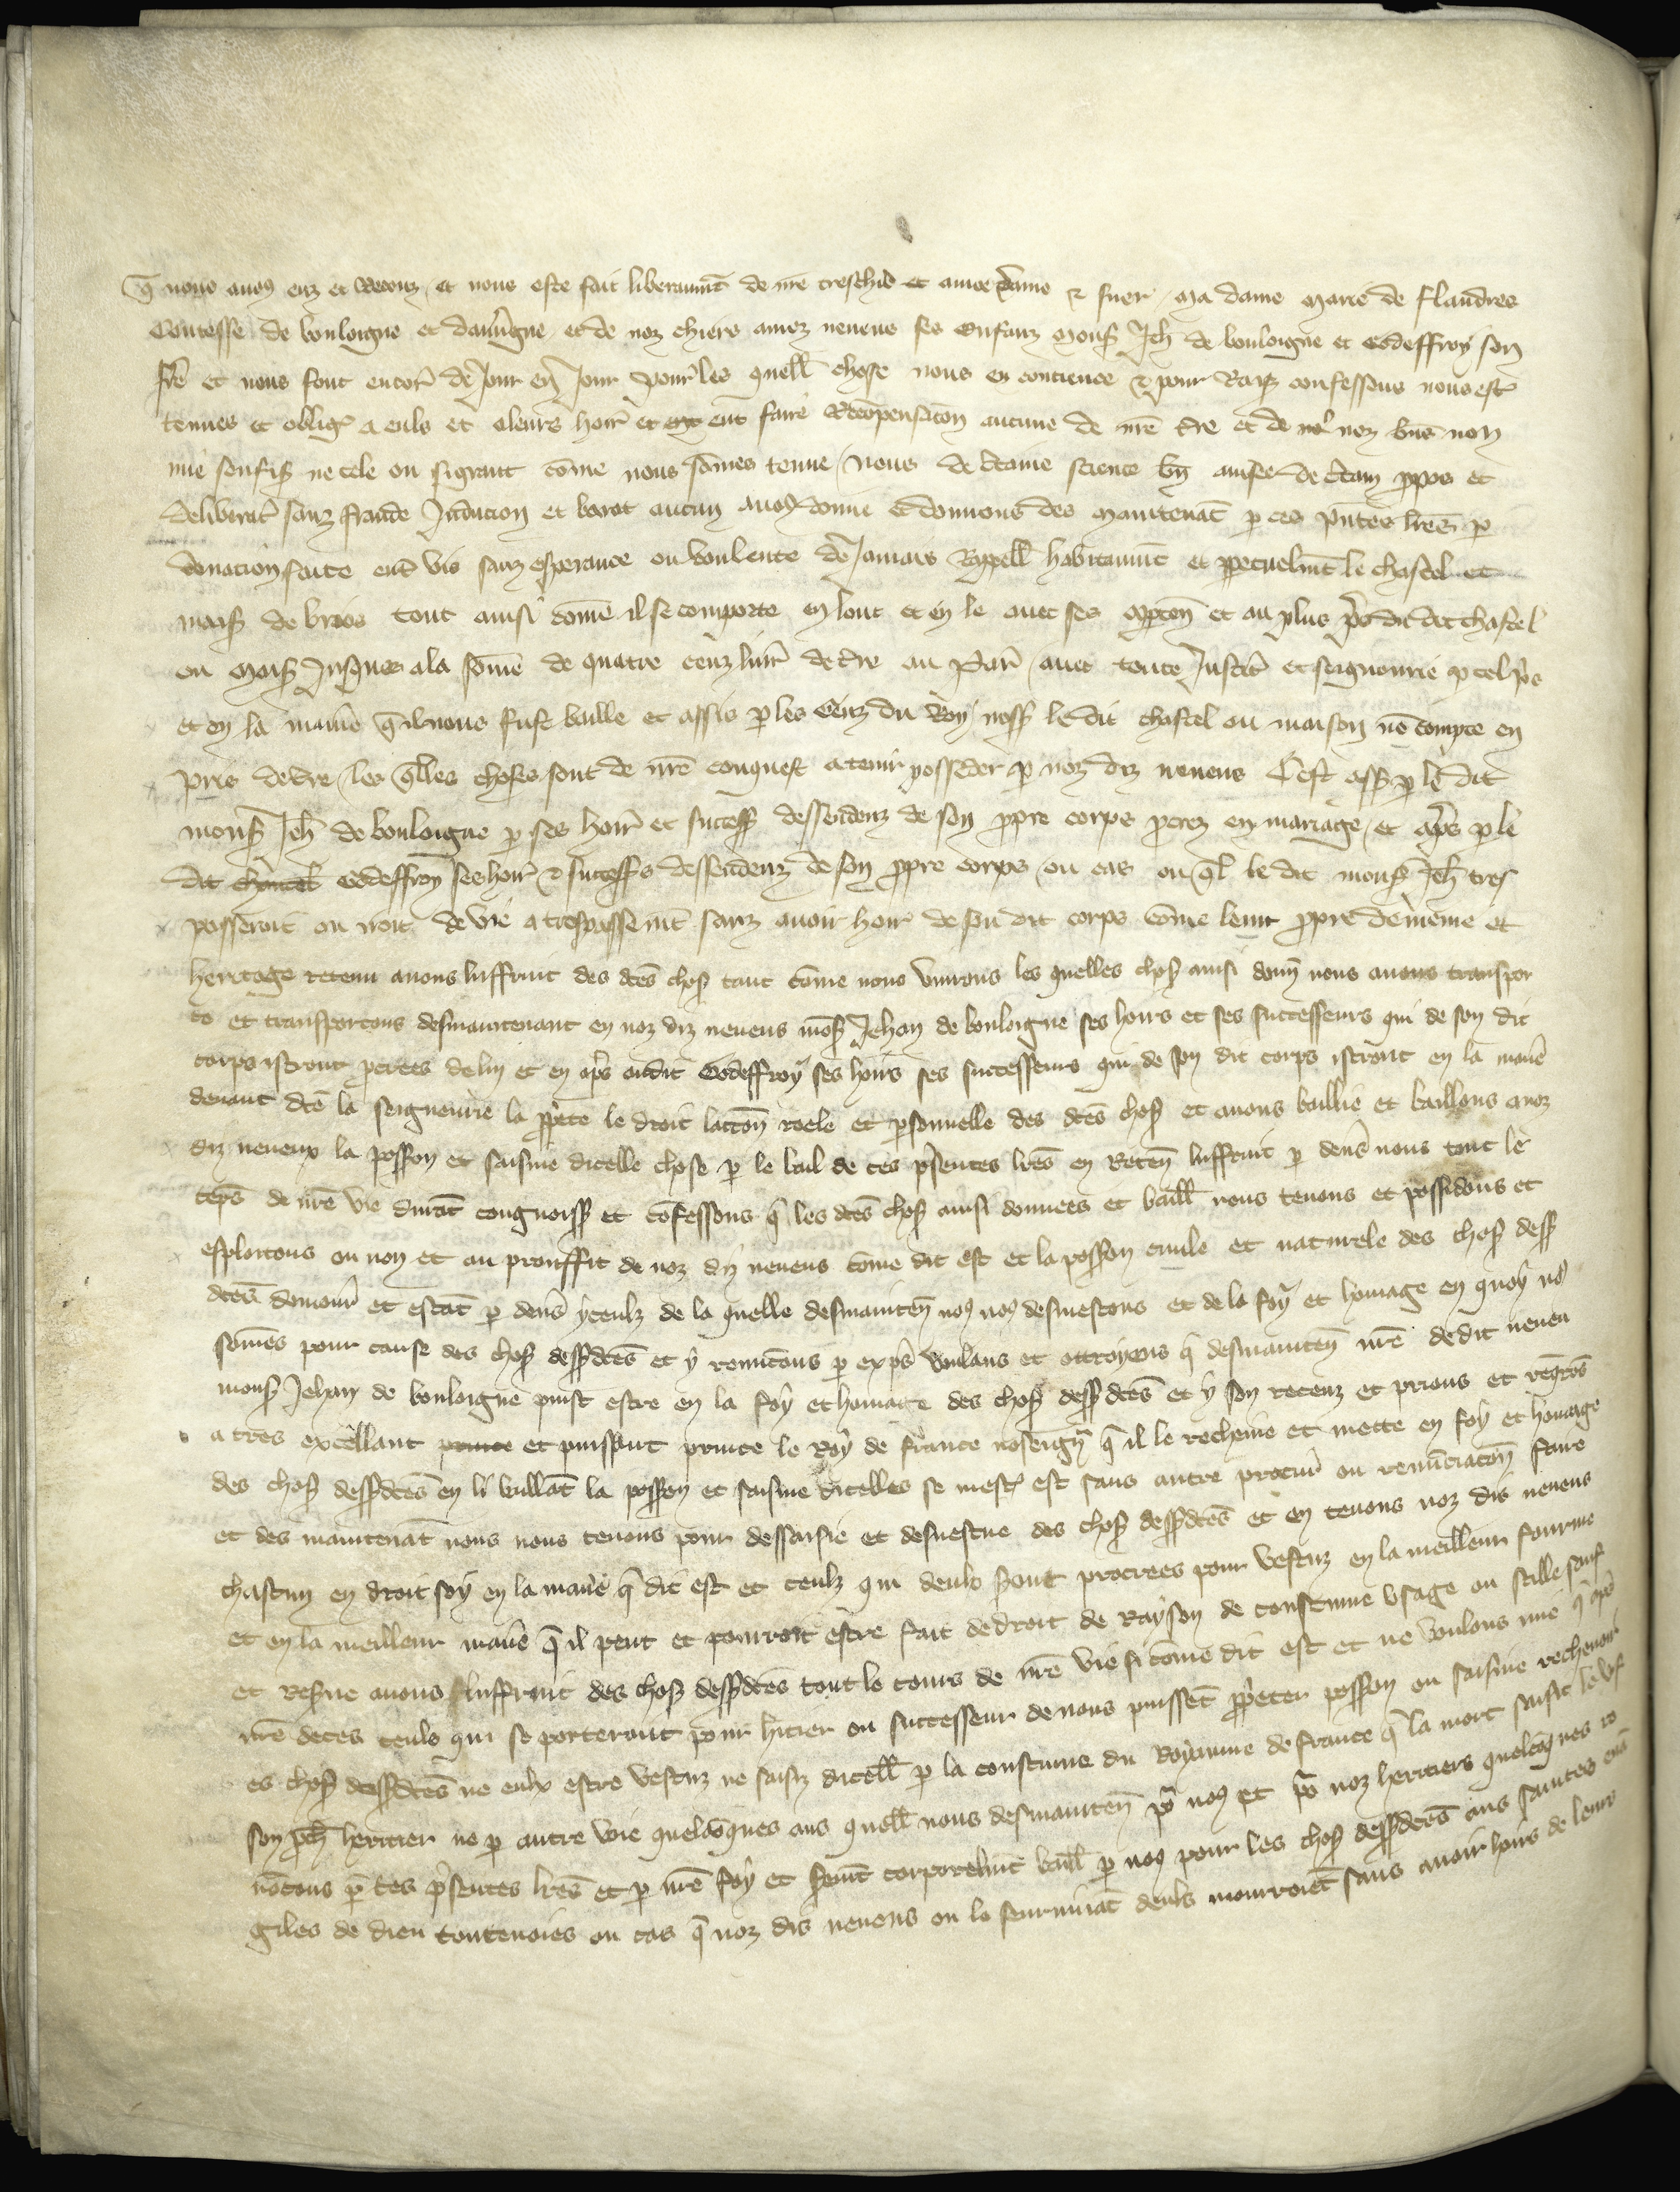 q̄ nous avons euz et Receuz et nous este fait liberaumt̄ de nr̄e treschiere et amee dame & suer ma dame Marie de flandres
Contesse de bouloigne et dauuergne et de noz chiers amez neueus ses Enfanz Mons Jeh de bouloigne et Godeffroy son
fr̄e et nous font encor̄ de Jour en Jour pour les quell chose nous en concience & pour Raiſ confessons nous est̄
tenues et obliḡ a euls et aleurs hoir et eut faire Recōpensacōn aucune de nr̄e tr̄e et de noz bn̄s non
mie soufiſ ne cele ou si grant cōme nous sōmes tenue / nous de cr̄taine science bn̄ auisee de cr̄tain ꝓpos et
deliberat̄ sanz fraude Induction et barat aucun auoꝰ donne & donnons des maintenāt p ces p̄ntes lr̄es p
donacion faite ent̄ vis sanz esperance ou voulente de Jamais Rapell habitaumt̄ et ppetuelmt̄ le chastel et
maiſ de brios tout ainsi cōme il se comporte en lonc et en le auec ses apten̄ et au plus p̄s du dit chastel
ou Maiſ Jusques ala sōme de quatre cenz liur̄ de tr̄e au Par̄ auec toute Justic̄ et seignourie p tel p̄s
et en la manie q̄ il nous fust baille et assis p les Genz du Roy noss̄ le dit chastel ou maison nō compte en
pris de tr̄e / les q̄lles choses sont de nr̄e conquest a tenir posseder p noz diz neueus Cest ass̄ p le dit
mons̄ Jeh̄ de bouloigne p ses hoir̄ et success̄ dessendenz de son ppre corps pcrez en mariage et ap̄s p le
dit Godeffroy ses hoir̄ & success̄s dessendenz de son ppre corps / ou cas ou q̄l le dit mons̄ Jeh̄ tres
passeroit ou iroit de vie a trespassemt̄ sanz auoir hoir de son dit corps cōme leur ppre demeine et
heritage retenu auons lusfruit des dc̄es choſ tant cōme nous viurons les quelles choſ ainsi donn̄ nous auons transpor
te et transportons desmaintenant en noz diz neueus mōs Jehan de bouloigne ses hoirs et ses successeurs qui de son dit
corps istront pcrees de lui et en ap̄s audit Godeffroy ses hoirs ses successeurs qui de son dit corps istront en la manie
deuant dc̄e la seigneurie la ppete le droit laccōn reele et psonnelle des dc̄es choſ et auons baillie et baillons a noz
diz neueux la possōn et saisine dicelle chose p le bail de ces p̄sentes lr̄es en Reten̄ lusfruit p deuers nous tout le
tēps de nr̄e vie durāt congnoiss̄ et cōfessons q̄ les dc̄es choſ ainsi donnees et baill̄ nous tenons et possidons et
esploitons ou non et au prouffit de noz diz neueus cōme dit est et la possōn ciuile et naturele des choſ dess̄
dc̄es demour̄ et estāt p deuers yceulz de la quelle desmainten̄ noꝰ noꝰ desuestons et de la foy et homage en quoy noꝰ
sōmes pour cause des choſ dess̄dc̄es et y renūcons p exp̄s voulans et ottroyons q̄ desmainten̄ nr̄e dedit neueu
mons̄ Jehan de bouloigne puist estre en la foy et homage des choſ dess̄dc̄es et y son receuz et prions et regr̄ōs
a tres excellant prince et puissant prince le Roy de france nosseign̄r q̄ il le recheuie et mette en foy et homage
des choſ dess̄dc̄es en li baillāt la possōn et saisine dicelles se mest̄ est sans autre procur̄ ou renūciacōn faire
et des maintenāt nous nous tenons pour dessaisie et desuestue des choſ dess̄dc̄es et en tenons noz dis neueus
chascun en droit soy en la manie q̄ dit est et ceulz qui deulx s̄ont procrees pour vestuz en la meilleur fourme
et en la meilleur manie q̄ il peut et pourroit estre fait de droit de Rayson de constume vsage ou stille sauf
et Res̄ue auons lusfruit des choſ dess̄dc̄es tout le cours de nr̄e vie si cōme dit est et ne voulons mie q̄ ap̄s
nr̄e deces ceuls qui se porteront pour h̄itier ou successeur de nous puissēt ppeter possōn ou saisine recheuoir
es choſ dess̄dc̄es ne eulx estre vestuz ne saisiz dicell̄ p la coustume du Royaume de france q̄ la mort saisit le vif
son pch̄ heritier ne p autre voie quelcōques ans quell̄ nous desmainten̄ po᷑ noꝰ et po᷑ noz heritiers quelcōques re
nōcons p ces p̄sentes lr̄es et p nr̄e foy et s̄rmt̄ corporelmt̄ baill̄ p noꝰ pour les choſ dess̄dc̄es aus saintes euā
giles de dieu toutenoies ou cas q̄ noz dis neueus ou le seuruiuāt deuls mourroiēt sans auoir hoirs de leurs